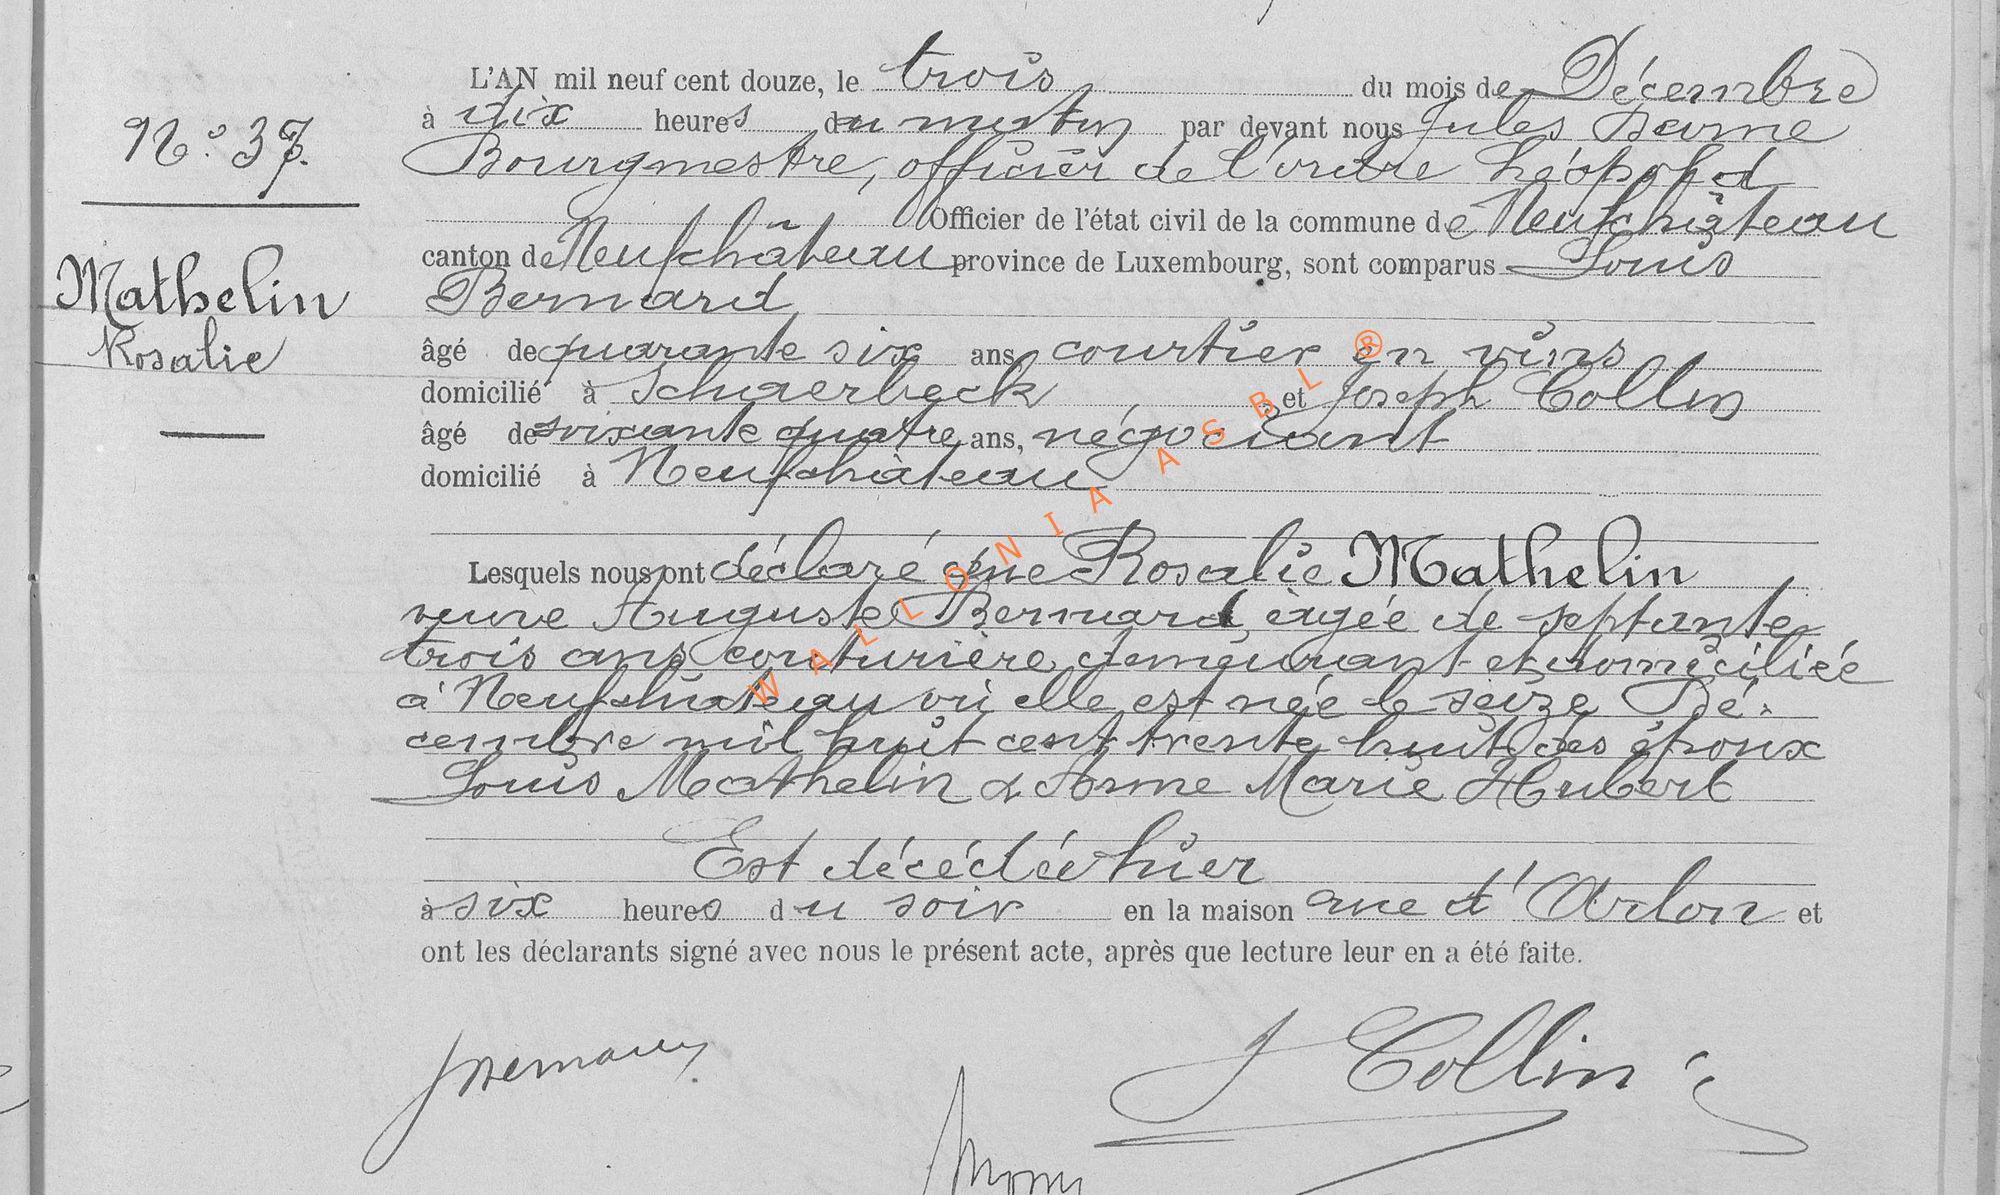 L'AN mil neuf cent douze, le trois du mois de Décembre
à dix heures du matin par devant nous Jules
Bourgmestre, officier de l'ordre Léopold
Officier de l'état civil de la commune de Neufchâteau
canton de Neufchâteau province de Luxembourg, sont comparus Louis
Bernard
âgé de quarante six ans courtier en vins
domicilié à Schaerbeck et Joseph Collin
âgé de soixante quatre ans, négociant
domicilié à Neufchâteau
Lesquels nous ont déclaré que Rosalie Mathelin
veuve Auguste Bernard, âgée de septante
trois ans, couturière, demeurant et domiciliée
à Neufchâteau où elle est née le seize Dé-
cembre mil huit cent trente huit des époux
Louis Mathelin & Anne Marie Hubert
Est décédée hier
à six heures du soir en la maison rue d'Arlon et
ont les déclarants signé avec nous le présent acte, après que lecture leur en a été faite.
J Collin
N° 37.
Mathelin
Rosalie
WALLONIA ASBL ®